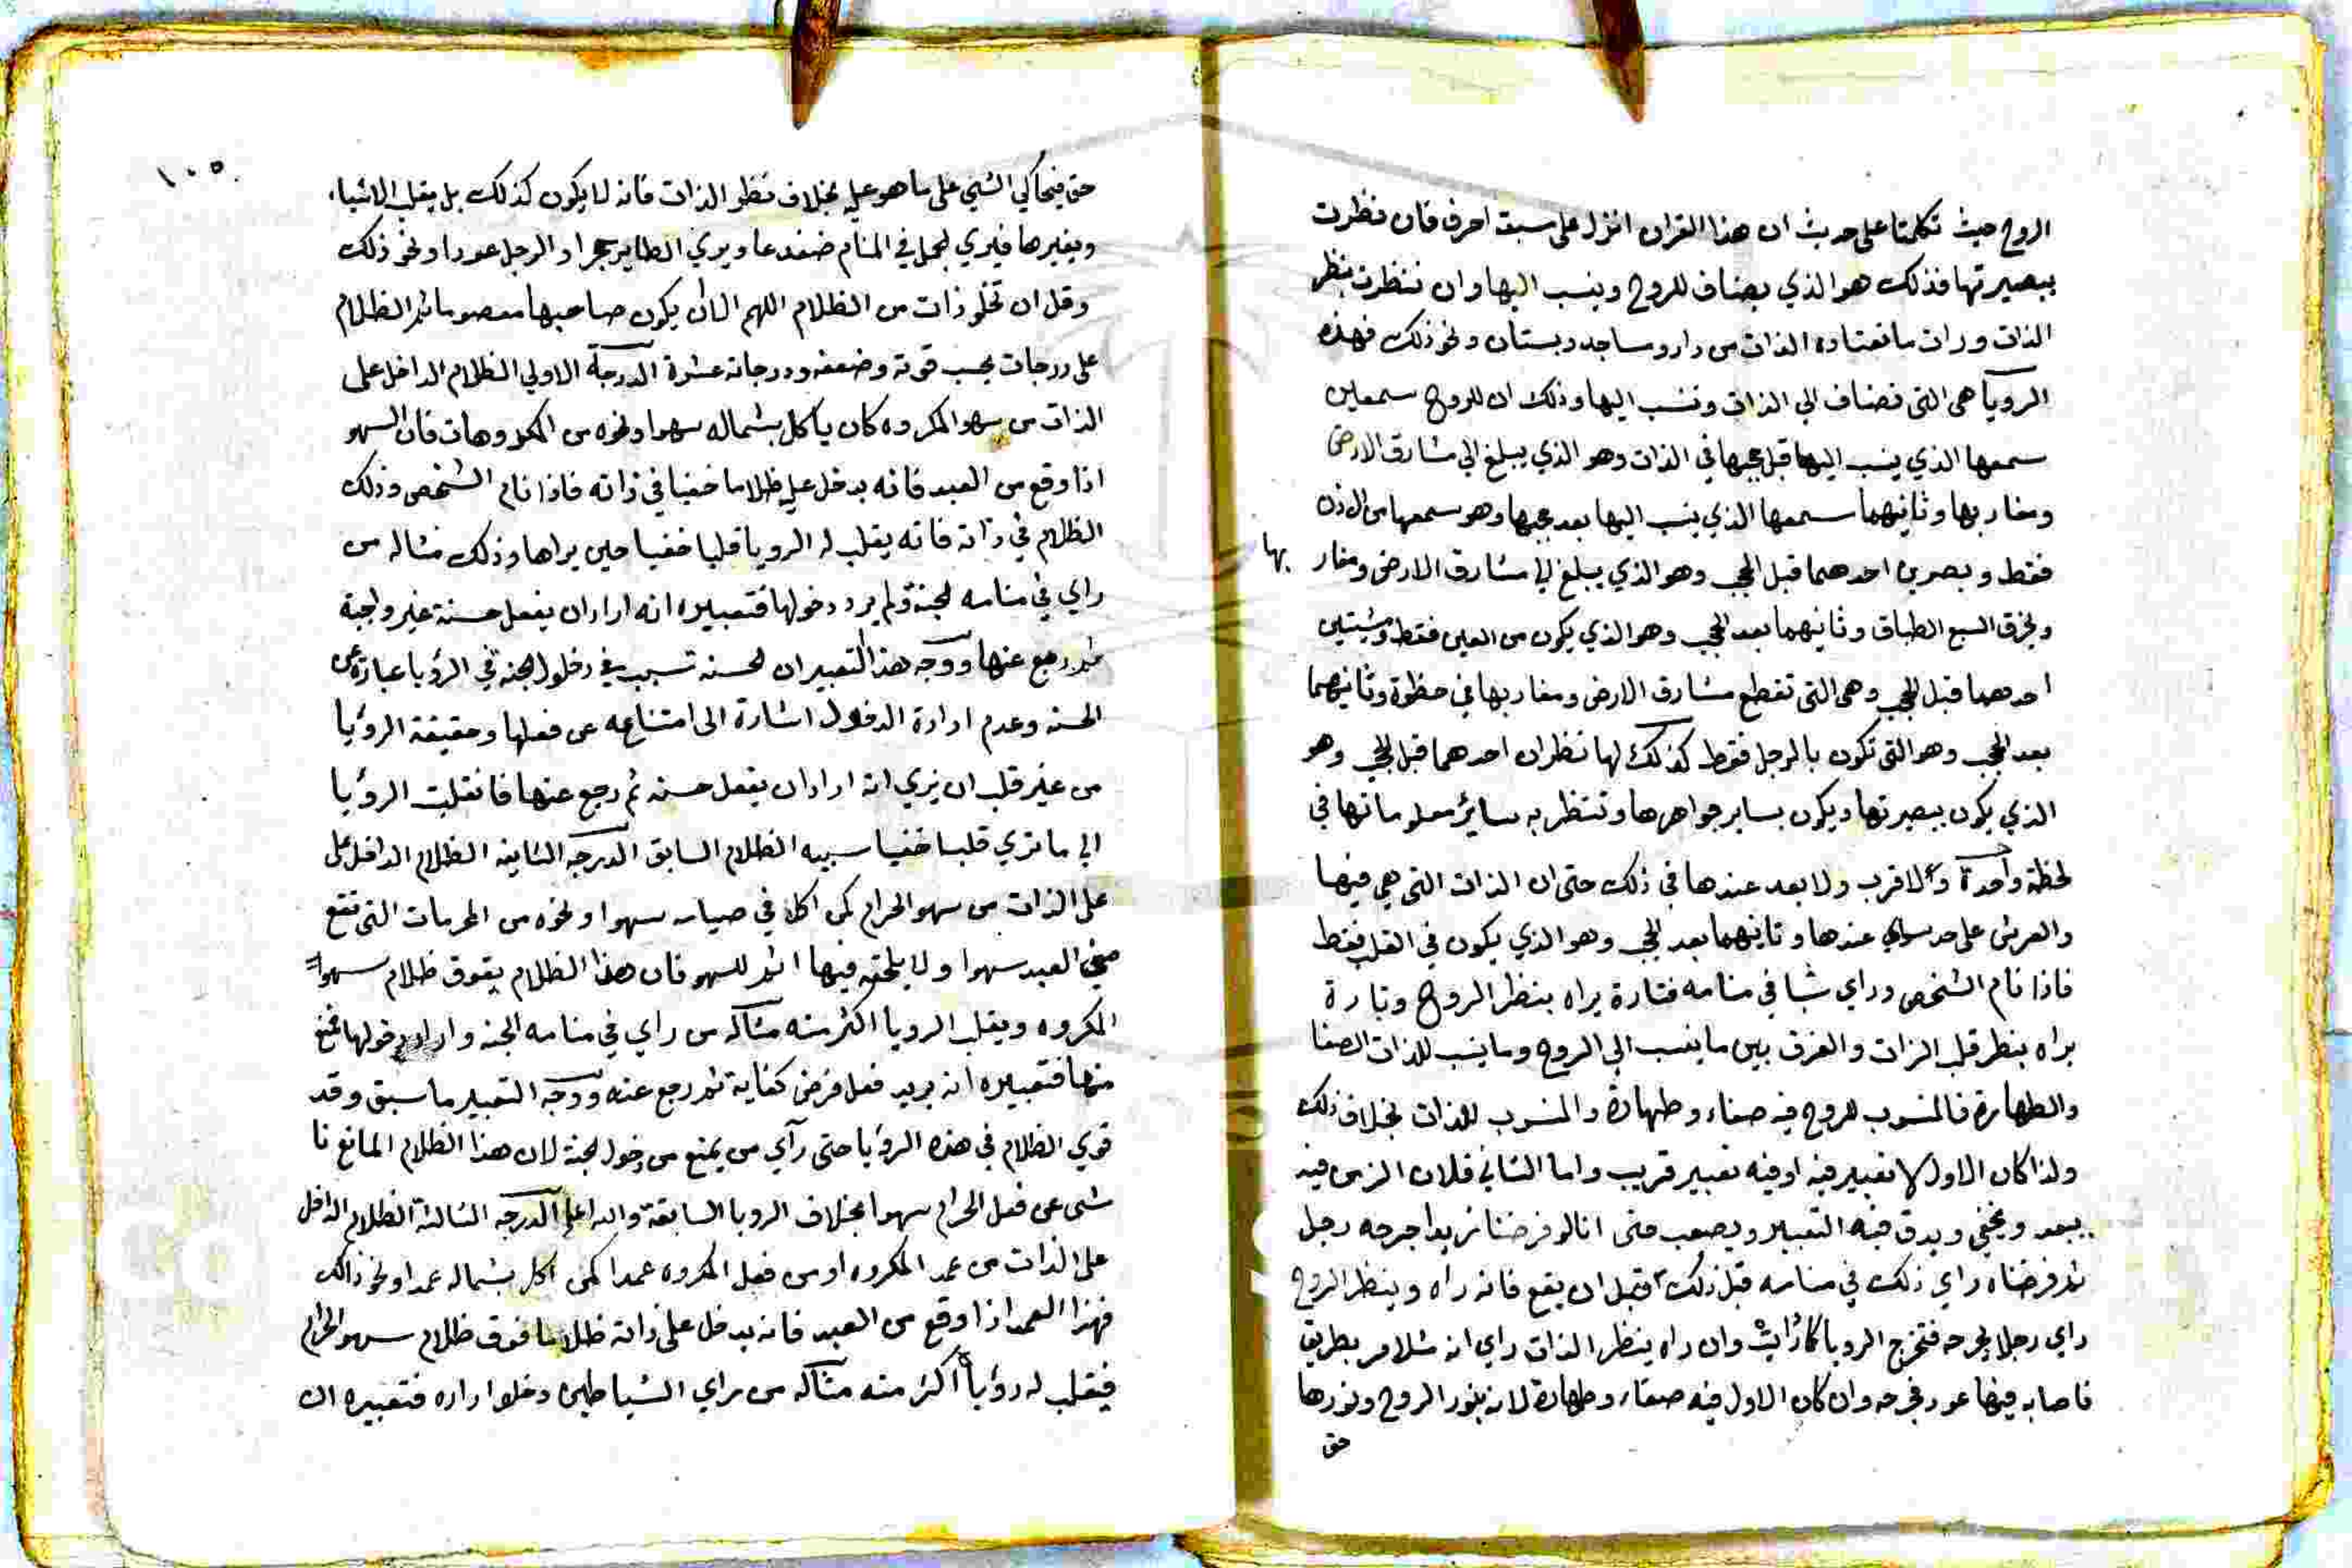 الروح حيث تكلمنا على حديث ان هذا القران انزل على سبعة احرف فان نظرت
ببصيرتها فذلك هو الذي يضاف للروح وينسب اليها وان ننظرت بنظر
الذات ورات ما تعتاده الذات من دار ومساجد وبستان ونحو ذلك فهذه
الرويا هي التي تضاف الي الذات وتنسب اليها وذلك ان للروح سمعين
سمعها الذي ينسب اليها قبل حجبها في الذات وهو الذي يبلغ الي مشارق الارض
ومغاربها وثانيهما سمعها الذي ينسب اليها بعد حجبها وهو سمعها من الاذن
فقط وبصرين احدهما قبل الحجب وهو الذي يبلغ الي مشارق الارض ومغاربها
ويخرق السبع الطباق وثانيهما بعد الحجب وهو الذي يكون من العين فقط ومشيتين
احدهما قبل الحجب وهي التي تقطع مشارق الارض ومغاربها في خطوة وثانيهما
بعد الحجب وهو التي تكون بالرجل فقط كذلك لها نظران احدهما قبل الحجب وهو
الذي يكون ببصيرتها ويكون بساير جواهرها وتنظر به ساير معلوماتها في
لحظة واحدة ولا قرب ولا بعد عندها في ذلك حتى ان الذات التي هي فيها
والعرش على حد سواي عندها وثانيهما بعد الحجب وهو الذي يكون في القلب فقط
فاذا نام الشخص وراي شيا في منامه فتارة يراه بنظر الروح وتارة
يراه بنظر قلب الذات والفرق بين ما ينسب الي الروح وما ينسب للذات الصفا
والطهارة فالمنسوب للروح فيه صفاء وطهارة والمنسوب للذات بخلاف ذلك
ولذا كان الاول لا تعبير فيه او فيه تعبير قريب واما الثاني فلان الرمز فيه
يبعد ويخفي ويدق فيه التعبير ويصعب متى انا لو فرضنا زيدا جرحه رجل
ثم فرضناه راي ذلك في منامه قبل ذلك وقبل ان يقع فانه راه وبنظر الروح
راي رجلا يجرحه فتخرج الرويا كما رايت وان راه بنظر الذات راي انه مثلا مر بطريق
فاصابه فيها عود فجرحه وان كان الاول فيه صفاء وطهارة لانه بنور الروح ونورها
حق
١٠٥
حق فيحاكي الشي على ما هو عليه بخلاف نظر الذات فانه لا يكون كذلك بل يقلب الاشياء
ويغيرها فيري الجمل في المنام ضفدعا ويري الطاير حجرا والرجل عودا ونحو ذلك
وقل ان تخلو ذات من الظلام اللهم الا ان يكون صاحبها معصوما ثم الظلام
على درجات بحسب قوته وضعفه ودرجاته عشرة الدرجة الاولي الظلام الداخل على
الذات من سهو المكروه كان ياكل بشماله سهوا ونحوه من المكروهات فان السهو
اذا وقع من العبد فانه يدخل عليه ظلاما خفيا في ذاته فاذا نام الشخص وذلك
الظلام في ذاته فانه يقلب له الرويا قلبا خفيا حين يراها وذلك مثاله من
راي في منامه الجنة ولم يرد دخولها فتعبيره انه اراد ان يفعل حسنة غير واجبة
ثم رجع عنها ووجه هذا التعبير ان الحسنه تسبب في دخول الجنه في الرؤيا عبارة عن
الحسنه وعدم ارادة الدخول اشارة الى امتناعه عن فعلها وحقيقة الرؤيا
من غير قلب ان يري انه اراد ان يفعل حسنه ثم رجع عنها فانقلبت الرؤيا
الي ما تري قلبا خفيا سببه الظلام السابق الدرجه الثانيه الظلام الداخل على
على الذات من سهو الحرام كمن اكل في صيامه سهوا ونحوه من المحرمات التي تقع
من العبد سهوا ولا يلحقه فيها اثم للسهو فان هذا الظلام يفوق ظلام سهو
المكروه ويقلب الرويا اكثر منه مثاله من راي في منامه الجنه واراد دخولها فمنع
منها فتعبيره انه يريد فعل فرض كفاية ثم رجع عنه ووجه التعبير ما سبق وقد
قوي الظلام في هذه الرؤيا حتى رآي من يمنع من دخول الجنة لان هذا الظلام المانع نا
شى عن فعل الحرام سهوا بخلاف الرويا السابقة والله اعلم الدرجه الثالثة الظلام الداخل
على الذات من عمد المكروه او من فعل المكروه عمدا كمن اكل بشماله عمدا ونحو ذالك
فهذا العمد اذا وقع من العبد فانه يدخل على ذاته ظلاما فوق ظلام سهو الحرام
فيقلب له رؤيا أكثر منه مثاله من راي الشياطين دخلوا داره فتعبيره ان